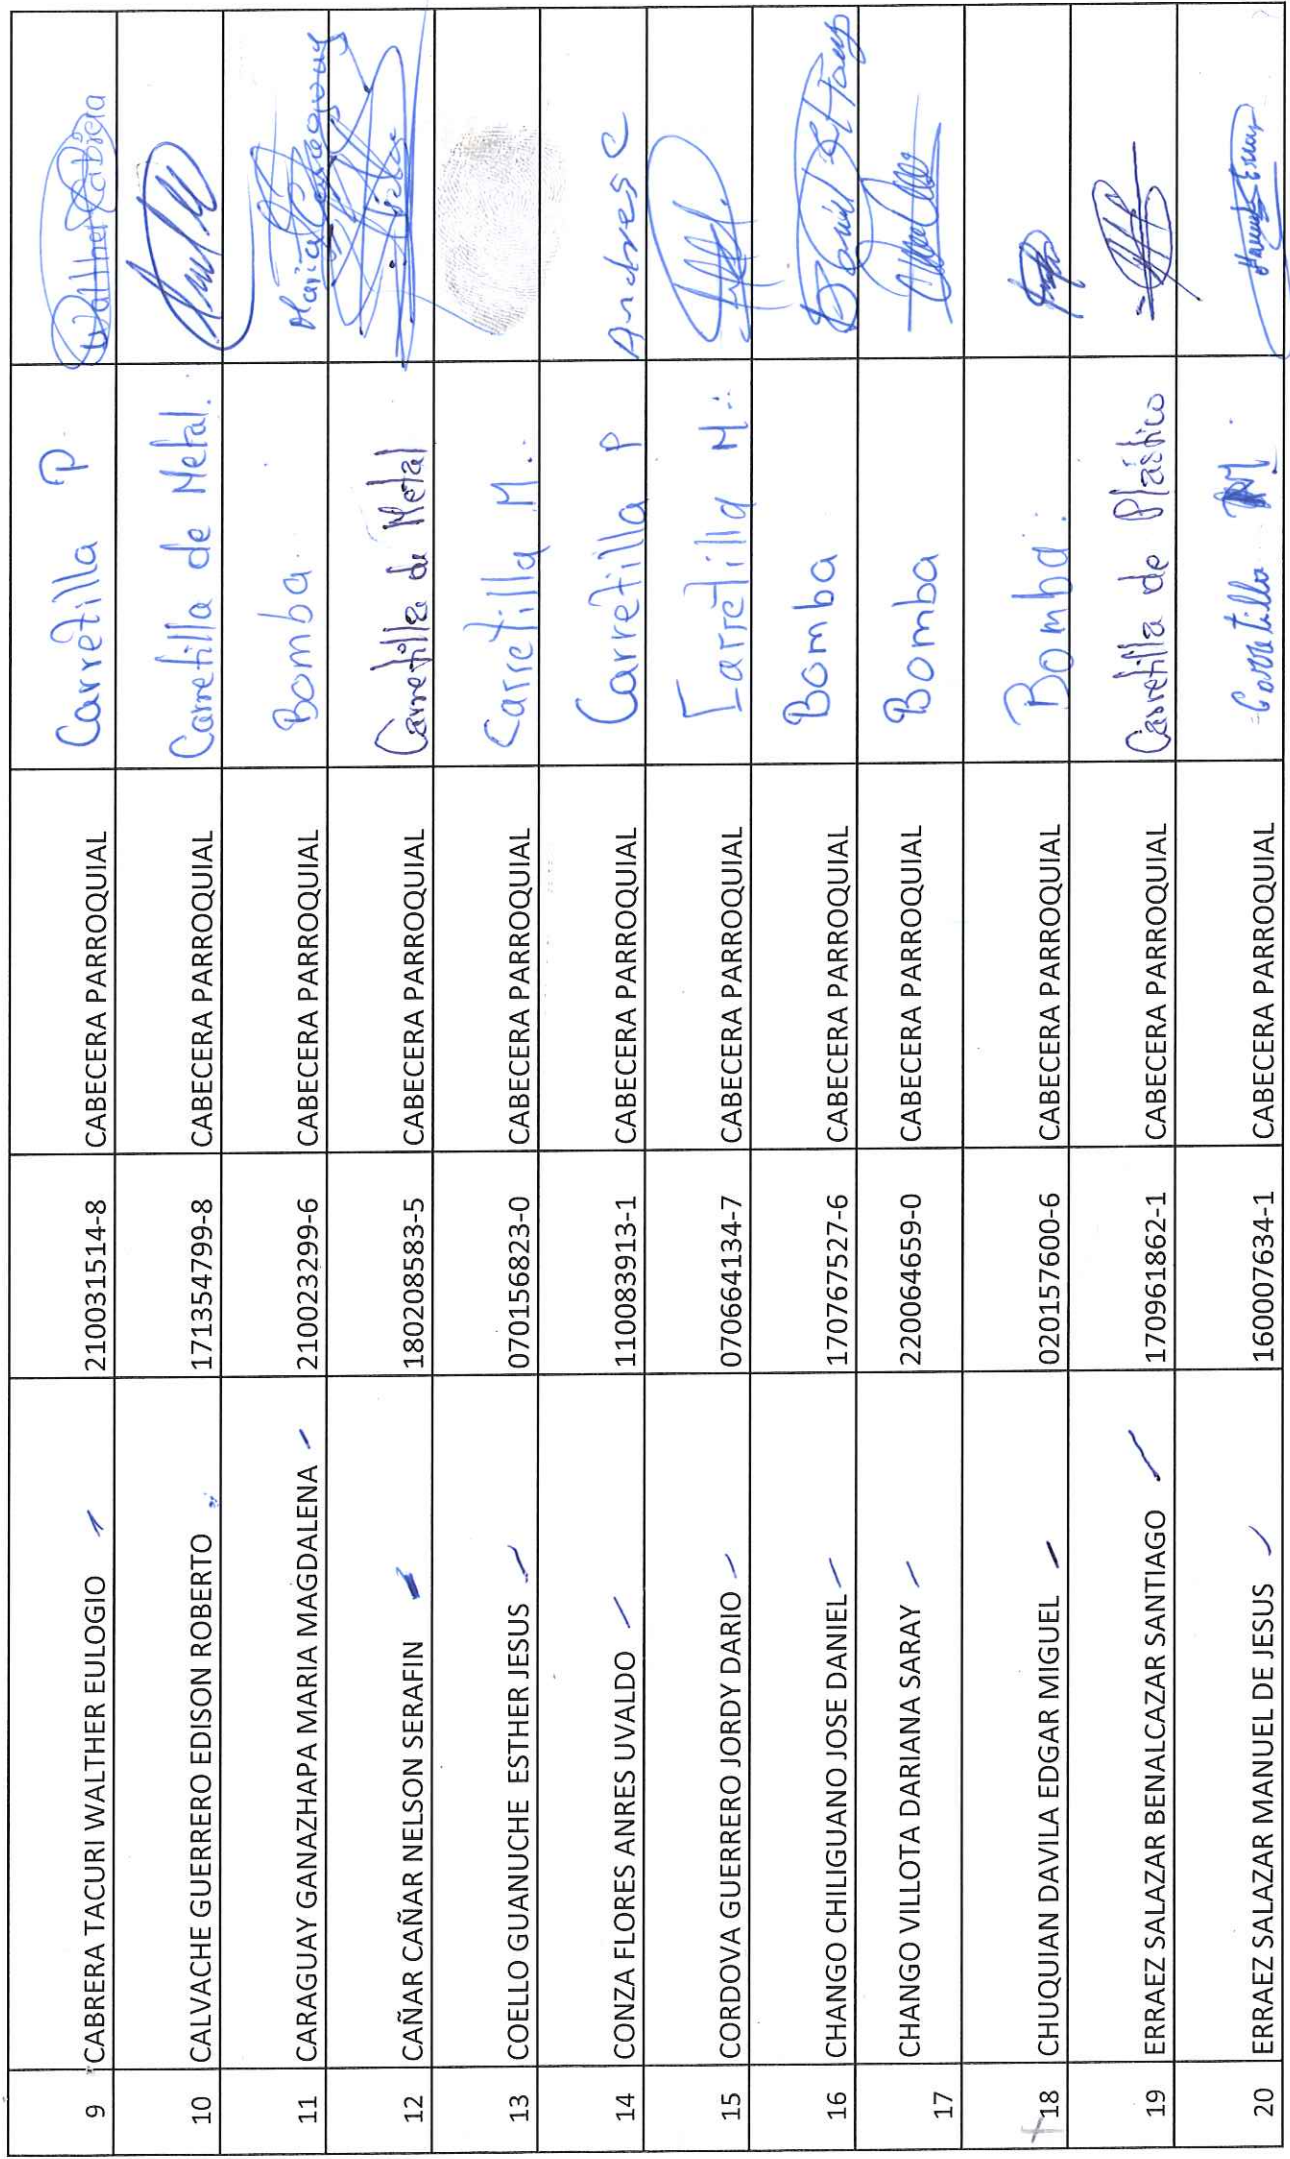 9 CABRERA TACURI WALTHER EULOGIO 210031514-8 CABECERA PARROQUIAL Carretilla P. Walther Cabrera
10 CALVACHE GUERRERO EDISON ROBERTO 171354799-8 CABECERA PARROQUIAL Carretilla de Metal.
11 CARAGUAY GANAZHAPA MARIA MAGDALENA 210023299-6 CABECERA PARROQUIAL Bomba. Maria Caraguay
12 CAÑAR CAÑAR NELSON SERAFIN 180208583-5 CABECERA PARROQUIAL Carretilla de Metal
13 COELLO GUANUCHE ESTHER JESUS 070156823-0 CABECERA PARROQUIAL Carretilla M.
14 CONZA FLORES ANRES UVALDO 110083913-1 CABECERA PARROQUIAL Carretilla P Andres C
15 CORDOVA GUERRERO JORDY DARIO 070664134-7 CABECERA PARROQUIAL Carretilla M.
16 CHANGO CHILIGUANO JOSE DANIEL 170767527-6 CABECERA PARROQUIAL Bomba
17 CHANGO VILLOTA DARIANA SARAY 220064659-0 CABECERA PARROQUIAL Bomba
18 CHUQUIAN DAVILA EDGAR MIGUEL 020157600-6 CABECERA PARROQUIAL Bomba.
19 ERRAEZ SALAZAR BENALCAZAR SANTIAGO 170961862-1 CABECERA PARROQUIAL Carretilla de Plástico
20 ERRAEZ SALAZAR MANUEL DE JESUS 160007634-1 CABECERA PARROQUIAL Carretilla M.